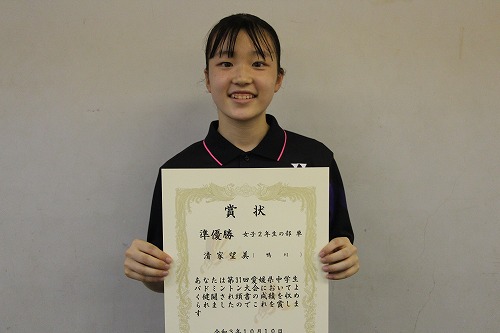 賞状
準優勝 女子2年生の部 単
清家望美 (鴨川)
あなたは第31回愛媛県中学生
バドミントン大会においてよ
く健闘され頭書の成績を収め
られましたのでこれを賞しま
す
令和3年10月10日